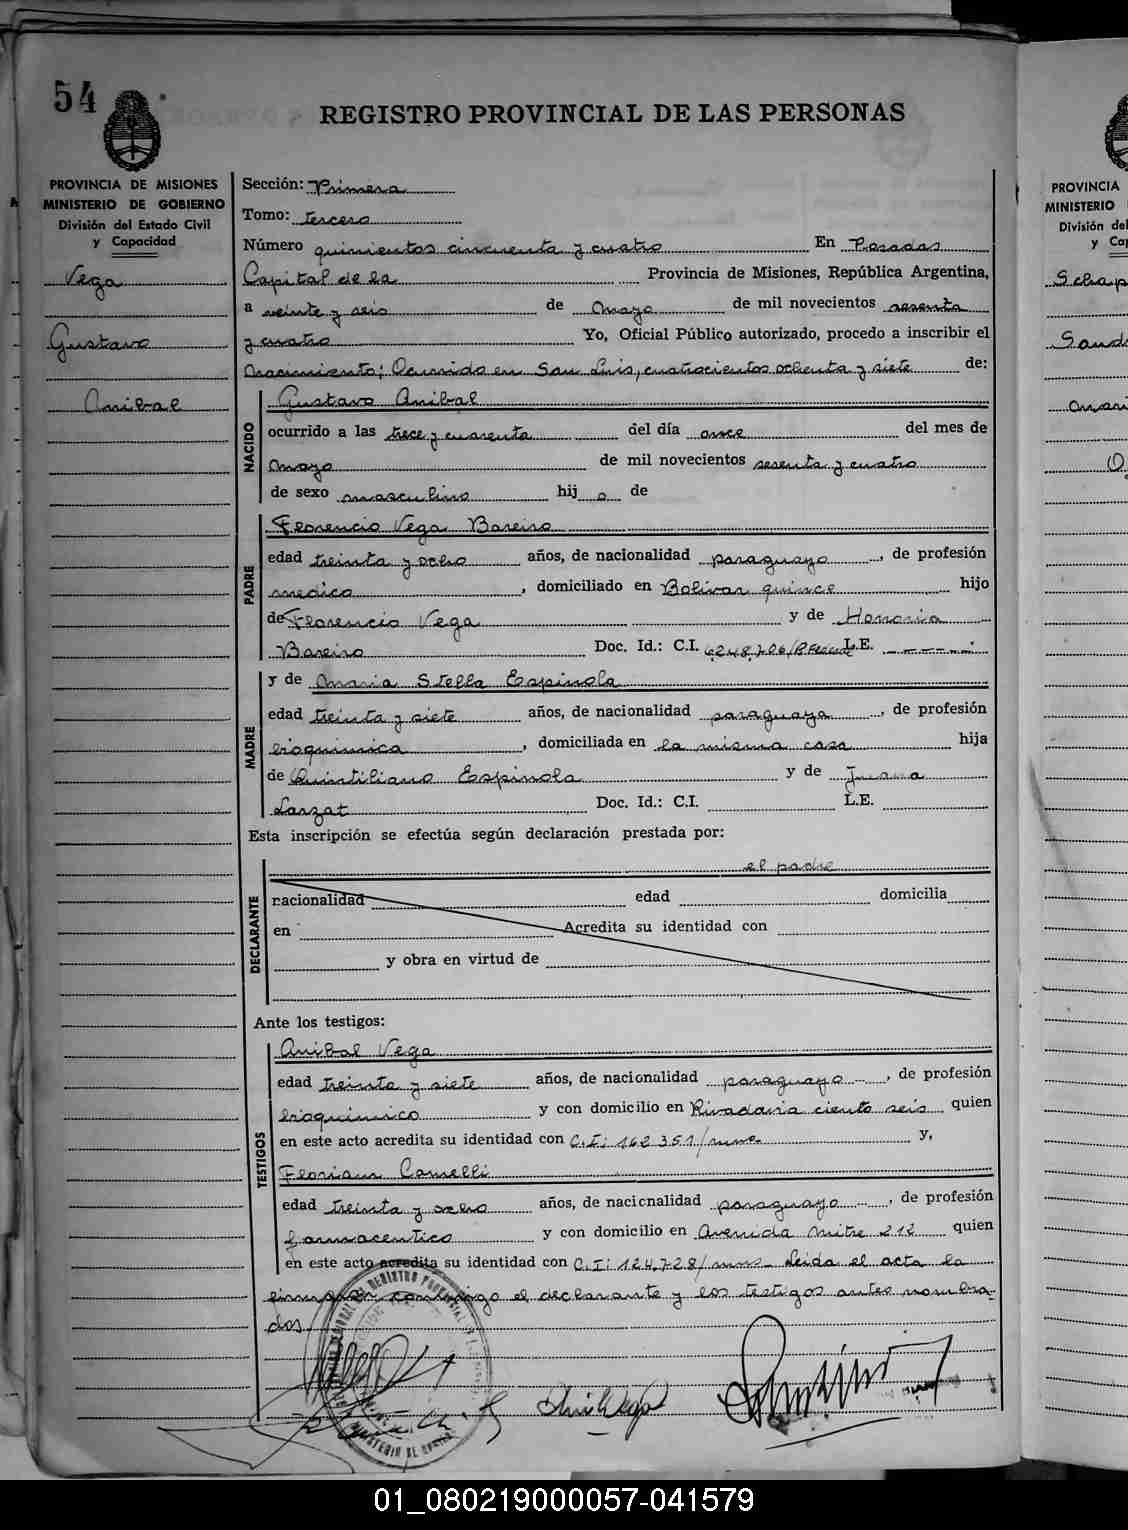 54
REGISTRO PROVINCIAL DE LAS PERSONAS
PROVINCIA DE MISIONES
MINISTERIO DE GOBIERNO
División del Estado Civil
y Capacidad
Vega
Gustavo
Anibal
Sección: Primera
Tomo: tercero
Número quinientos cincuenta y cuatro En Posadas
Capital de la Provincia de Misiones, República Argentina,
a veinte y seis de Mayo de mil novecientos sesenta
y cuatro Yo, Oficial Público autorizado, procedo a inscribir el
Nacimiento; Ocurrido en San Luis, cuatrocientos ochenta y siete de:
NACIDO
Gustavo Anibal
ocurrido a las trece y cuarenta del día once del mes de
Mayo de mil novecientos sesenta y cuatro
de sexo masculino hij o de
PADRE
Florencio Vega Bareiro
edad treinta y ocho años, de nacionalidad paraguayo, de profesión
medico, domiciliado en Bolivar quince hijo
de Florencio Vega y de Honoria
Bareiro Doc. Id.: C.I. L.E. ------
MADRE
y de Maria Stella Espinola
edad treinta y siete años, de nacionalidad paraguaya, de profesión
bioquimica, domiciliada en la misma casa hija
de Quintiliano Espinola y de Juana
Lanzat Doc. Id.: C.I. L.E.
Esta inscripción se efectúa según declaración prestada por:
DECLARANTE
el padre
nacionalidad edad domicilia
en Acredita su identidad con
y obra en virtud de
Ante los testigos:
TESTIGOS
Anibal Vega
edad treinta y siete años, de nacionalidad paraguayo, de profesión
bioquimico y con domicilio en Rivadavia ciento seis quien
en este acto acredita su identidad con C.I: 162.351/mnes y,
Florian Comelli
edad treinta y ocho años, de nacionalidad paraguayo, de profesión
farmaceutico y con domicilio en Avenida Mitre 212 quien
en este acto acredita su identidad con C.I: 124.728/mnes- Leida el acta la
firmaron conmigo el declarante y los testigos antes nombra-
dos.
PROVINCIA
MINISTERIO
División del
y Cap
Schap
01_080219000057-041579